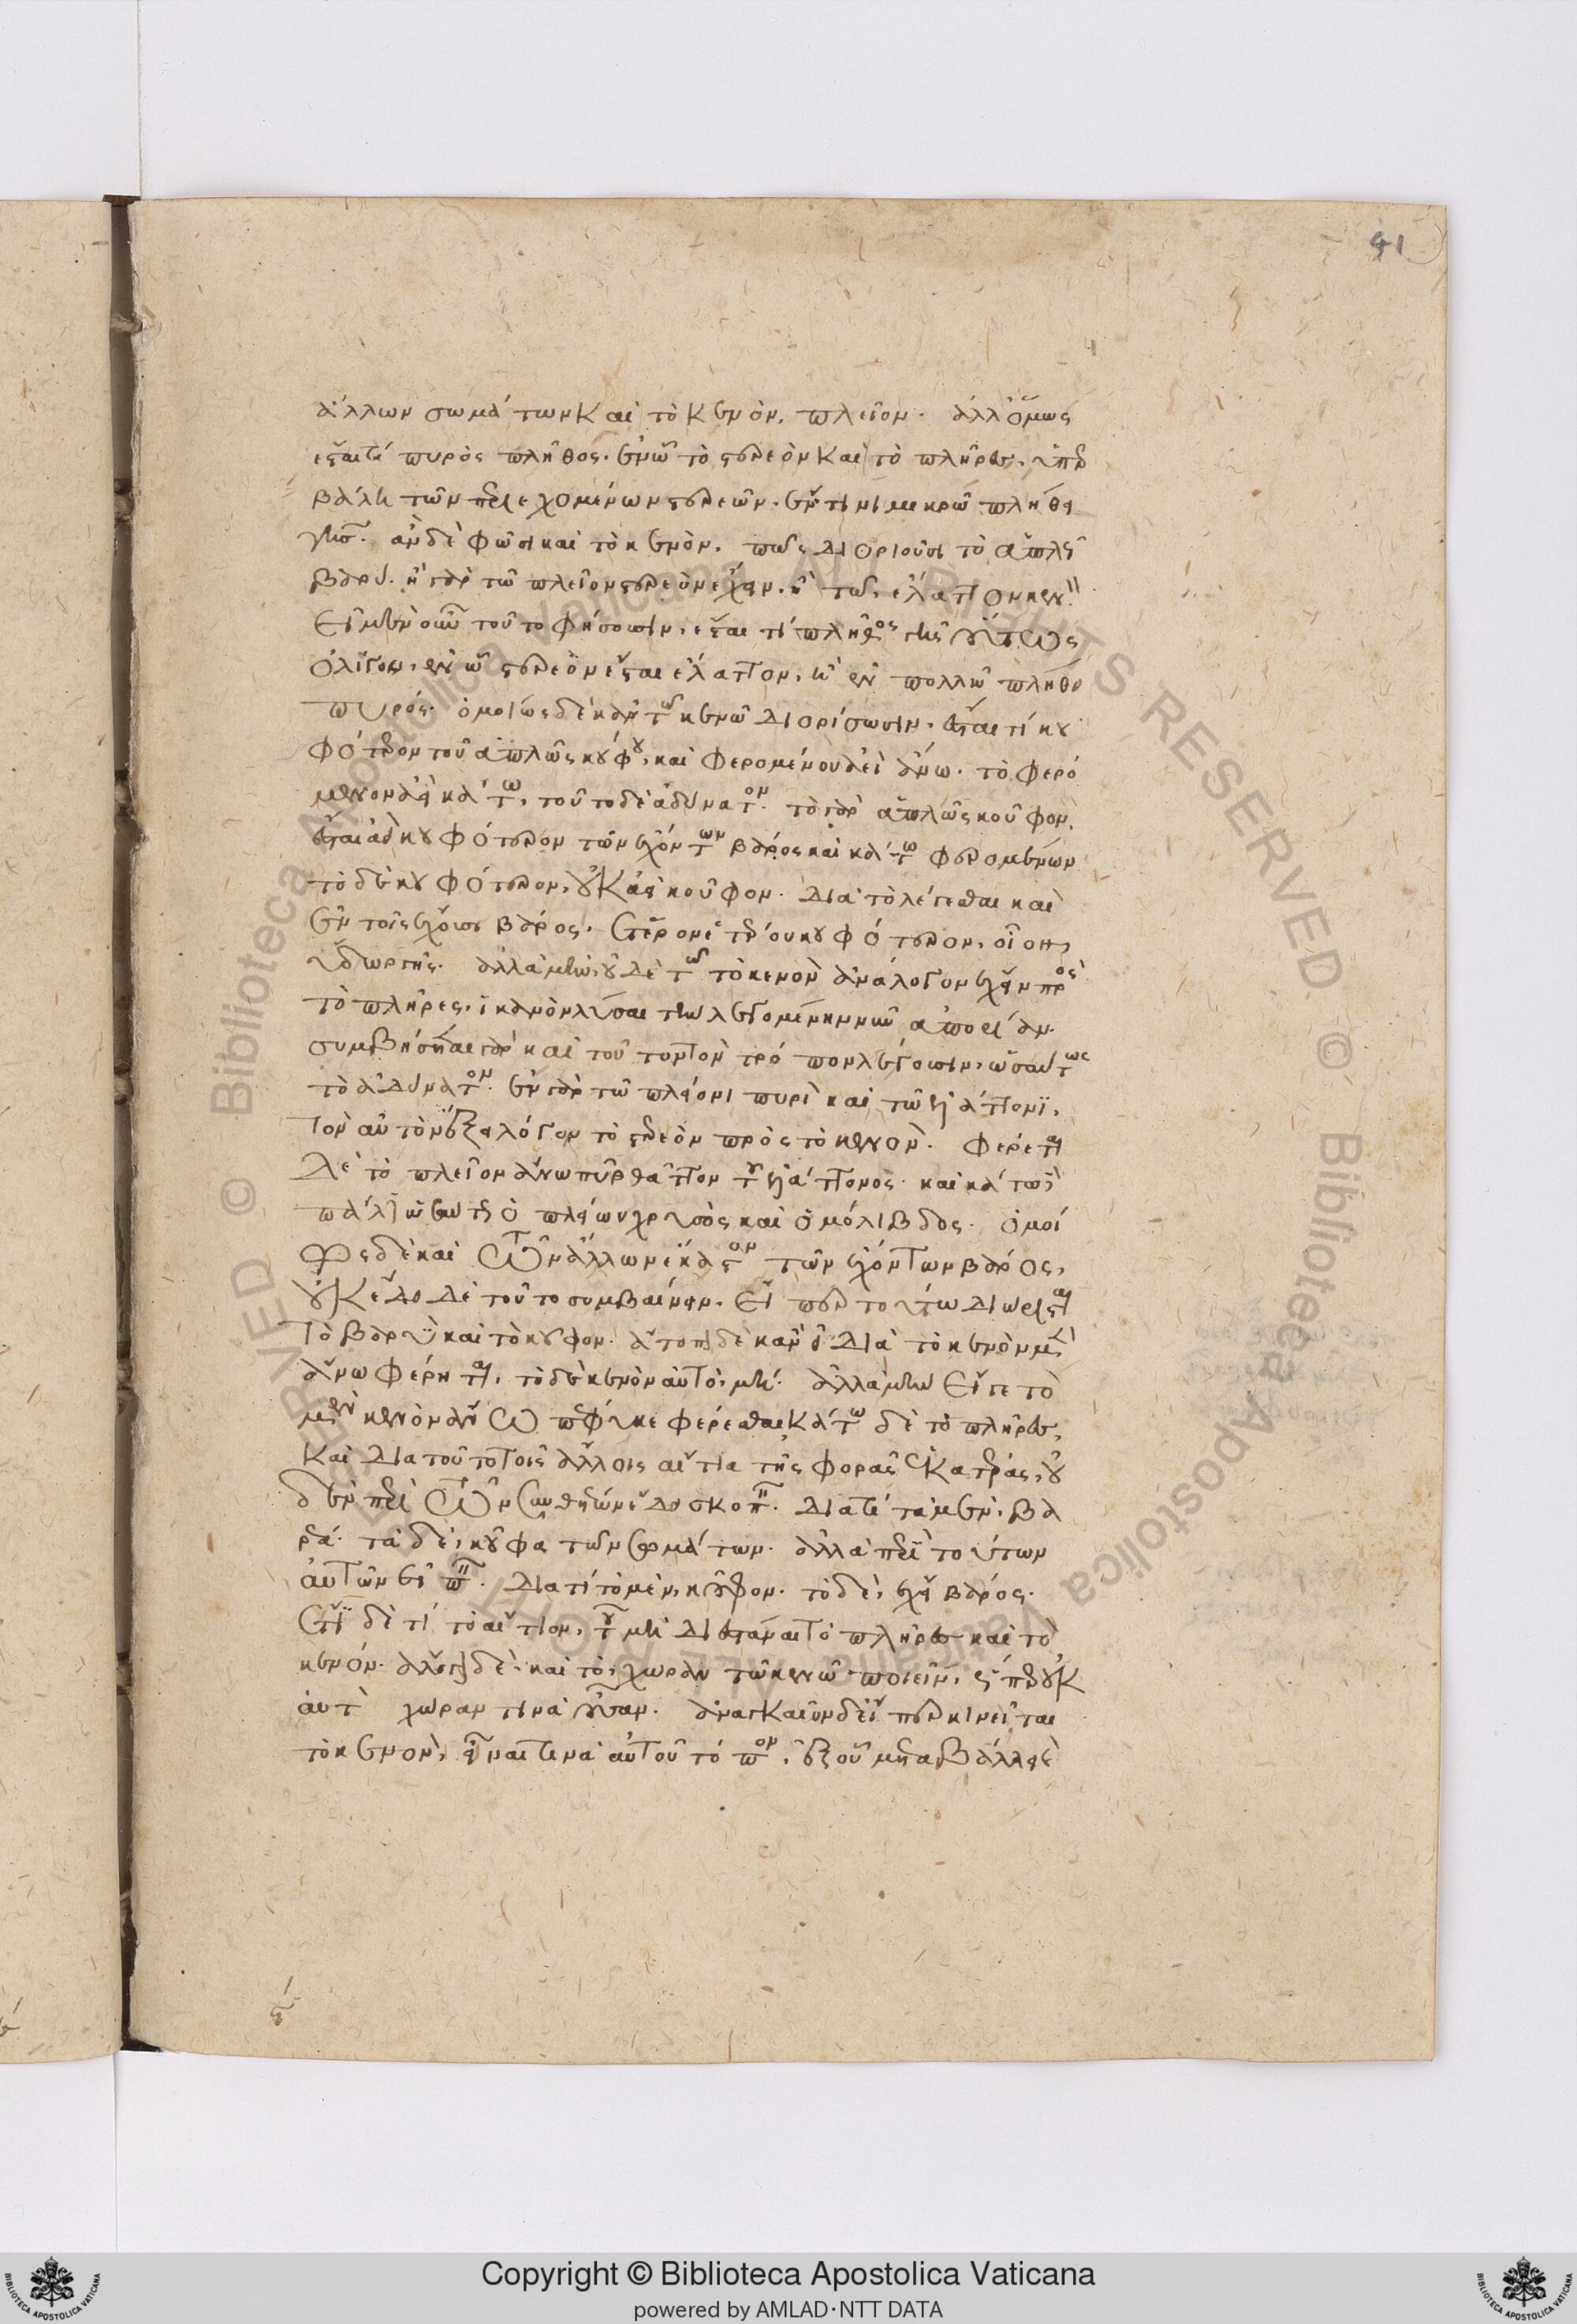 41
ἄλλων σωμάτων καὶ τὸ κενὸν, πλεῖον. ἀλλ' ὅμως
ἔσται τί πυρὸς πλῆθος. ἐν ᾧ τὸ στερεὸν καὶ τὸ πλῆρες, ὑπερ
βάλλει τῶν περιεχομένων στερεῶν. ἔν τινι μικρῶ πλήθει
γῆς. ἂν δὲ φῶσι καὶ τὸ κενὸν, πῶς διοριοῦσι τὸ ἁπλῶς
βαρύ. ἢ γὰρ τῶ πλεῖον στερεὸν ἔχειν. ἢ τῶ, ἔλαττον κενόν.
εἰ μὲν οὖν τοῦτο φήσουσιν, ἔσται τί πλῆθος γῆς οὕτως
ὀλίγον, ἐν ᾧ στερεὸν ἔσται ἔλαττον, ἢ ἐν πολλῶ πλήθει
πυρός. ὁμοίως δὲ κἂν τῶ κενῶ διορίσωσιν, ἔσται τί κου
φότερον τοῦ ἁπλῶς κούφου, καὶ φερομένου ἀεὶ ἄνω. τὸ φερό
μενον ἀεὶ κάτω, τοῦτο δὲ ἀδύνατον. τὸ γὰρ ἁπλῶς κοῦφον,
ἔσται ἀεὶ κουφότερον τῶν ἐχόντων βάρος καὶ κάτω φερομένων
τὸ δὲ κουφότερον, οὐκ ἀεὶ κοῦφον. διὰ τὸ λέγεσθαι καὶ
ἐν τοῖς ἔχουσι βάρος, ἕτερον ἑτέρου κουφότερον, οἷον,
ὕδωρ γῆς. ἀλλὰ μὴν, οὐδὲ τῶ τὸ κενὸν ἀνάλογον ἔχειν πρὸς
τὸ πλῆρες, ἱκανὸν λῦσαι τὴν λεγομένην νῦν ἀπορίαν.
συμβήσεται γὰρ καὶ τοῦτον τὸν τρόπον λέγουσιν, ὡσαύτως
τὸ ἀδύνατον. ἐν γὰρ τῶ πλείονι πυρὶ καὶ τῶ ἐλάττονι,
τὸν αὐτὸν ἕξει λόγον τὸ στερεὸν πρὸς τὸ κενὸν. φέρεται
δὲ τὸ πλεῖον ἄνω πῦρ θᾶττον τοῦ ἐλάττονος. καὶ κάτω δὲ
πάλιν ὡσαύτως ὁ πλείων χρυσὸς καὶ ὁ μόλιβδος. ὁμοί
ως δὲ καὶ τῶν ἄλλων ἕκαστον τῶν ἐχόντων βάρος,
οὐκ ἔδει δὲ τοῦτο συμβαίνειν. εἴπερ τούτω διώρισται
τὸ βαρὺ καὶ τὸ κουφον. ἄτοπον δὲ καὶ εἰ διὰ τὸ κενὸν μὲν
ἄνω φέρηται, τὸ δὲ κενὸν αὐτὸ, μή. ἀλλὰ μὴν εἴ γε τὸ
μὲν κενὸν ἄνω πέφυκε φέρεσθαι κάτω δὲ τὸ πλῆρες,
καὶ διὰ τοῦτο τοῖς ἄλλοις αἴτια τῆς φορᾶς ἑκατέρας, οὐ
δὲν περὶ τῶν συνθέτων ἔδει σκοπεῖν. διὰ τί τὰ μὲν, βα
ρέα. τὰ δὲ, κοῦφα τῶν σωμάτων. ἀλλὰ περὶ τούτων
αὐτῶν εἰπεῖν. διὰ τί τὸ μὲν, κοῦφον. τὸ δὲ, ἔχει βάρος.
ἔτι δὲ τί τὸ αἴτιον, τοῦ μὴ διεστάναι τὸ πλῆρες καὶ τὸ
κενόν. ἄλογον δὲ, καὶ τὸ, χώραν τῶ κενῶ ποιεῖν, ὥσπερ οὐκ
αὐτὸ χώραν τινὰ οὖσαν. ἀναγκαῖον δὲ εἴπερ κινεῖται
τὸ κενὸν, εἶναί τινα αὐτοῦ τόπον, ἐξ οὗ μεταβάλλει